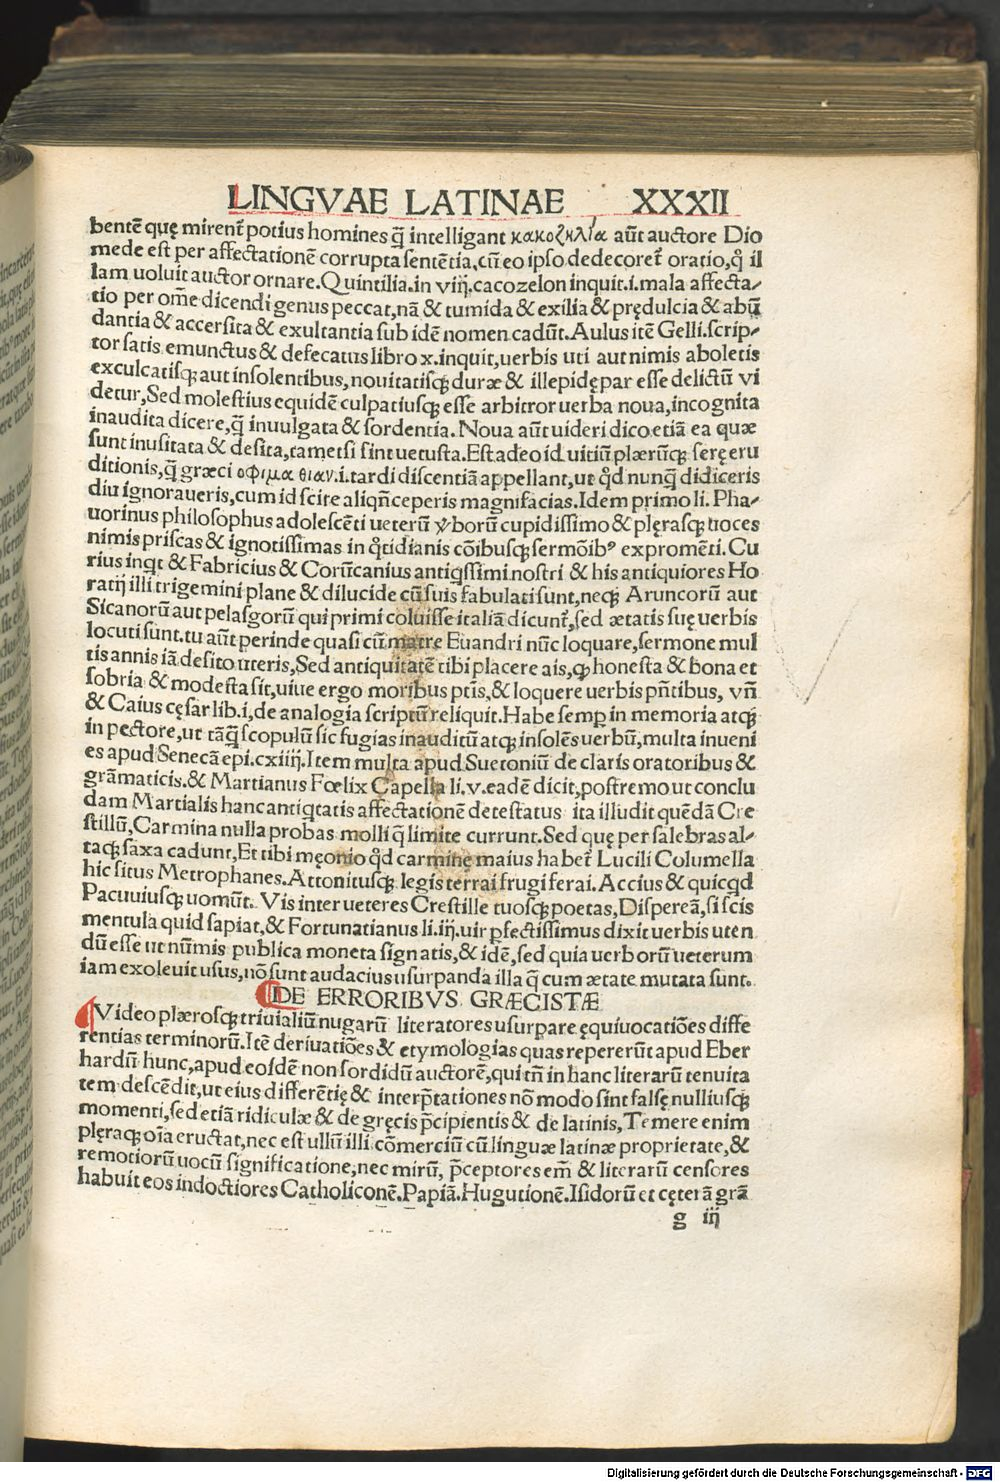 LINGVAE LATINAE XXXII
bentē quę mirenť potius homines q̄ intelligant κακοζκλία aūt auctore Dio
mede est per affectationē corrupta sentētia, cū eo ipso dedecoreť oratio, q̄ il
lam uoluit auctor ornare. Quintilia. in viij. cacozelon inquit .i. mala affecta⸗
tio per om̄e dicendi genus peccat, nā & tumida & exilia & prędulcia & abū
dantia & accersita & exultantia sub idē nomen cadūt. Aulus itē Gelli. scrip⸗
tor satis emunctus & defecatus libro x. inquit, uerbis uti aut nimis aboletis
exculcatisqꝫ aut insolentibus, nouitatisqꝫ duræ & illepidę par esse delictū vi
detur, Sed molestius equidē culpatiusqꝫ esse arbitror uerba noua, incognita
inaudita dicere, q̄ inuulgata & sordentia. Noua aūt uideri dico etiā ea quæ
sunt inusitata & desita, tametsi sint uetusta. Est adeo id uitiū plærūqꝫ seręeru
ditionis, q̄ græci οφιμα θιαν .i. tardi discentiā appellant, ut qd̄ nunq̄ didiceris
diu ignoraueris, cum id scire aliqn̄ceperis magnifacias. Idem primo li. Pha⸗
uorinus philosophus adolescēti ueterū ỽborū cupidissimo & plęrasqꝫ uoces
nimis priscas & ignotissimas in q̄tidianis cōibusqꝫ sermōibꝰ expromēti. Cu
rius inqt & Fabricius & Corūcanius antiqssimi nostri & his antiquiores Ho
ratij illi trigemini plane & dilucide cū suis fabulati sunt, neqꝫ Aruncorū aut
Sicanorū aut pelasgorū qui primi coluisse italiā dicunť, sed ætatis suę uerbis
locuti sunt. tu aūt perinde quasi cū matre Euandri nūc loquare, sermone mul
tis annis iā desito uteris, Sed antiquitatē tibi placere ais, ꝙ honesta & bona et
sobria & modesta sit, uiue ergo moribus ptīs, & loquere uerbis pn̄tibus, vn̄
& Caius cęsar lib. i, de analogia scriptū reliquit. Habe semꝑ in memoria atqꝫ
in pectore, ut tāq̄ scopulū sic fugias inauditū atqꝫ insolēs uerbū, multa inueni
es apud Senecā epi. cxiiij. Item multa apud Suetoniū de claris oratoribus &
grāmaticis. & Martianus Fœlix Capella li. v. eadē dicit, postremo ut conclu
dam Martialis hanc antiqtatis affectationē detestatus ita illudit quēdā Cre
stillū, Carmina nulla probas molli q̄ limite currunt. Sed quę per salebras al⸗
taqꝫ saxa cadunt, Et tibi męonio qd̄ carminę maius habeť Lucili Columella
hic situs Metrophanes. Attonitusqꝫ legis terrai frugiferai. Accius & quicqd
Pacuuiusqꝫ uomūt. Vis inter ueteres Crestille tuosqꝫ poetas, Dispereā, si scis
mentula quid sapiat, & Fortunatianus li. iij. uir ꝑfectissimus dixit uerbis uten
dū esse ut nūmis publica moneta signatis, & idē, sed quia uerborū ueterum
iam exoleuit usus, nō sunt audacius usurpanda illa q̄ cum ætate mutata sunt.
DE ERRORIBVS GRÆCISTÆ
Video plærosqꝫ triuialiū nugarū literatores usurpare ęquiuocatiōes diffe
rentias terminorū. Itē deriuatiōes & etymologias quas repererūt apud Eber
hardū hunc, apud eosdē non sordidū auctorē, qui tn̄ in hanc literarū tenuita
tem descēdit, ut eius differētię & interp̄tationes nō modo sint falsę nulliusqꝫ
momenti, sed etiā ridiculæ & de gręcis p̄cipientis & de latinis, Temere enim
plęraqꝫ oīa eructat, nec est ullū illi cōmerciū cū linguæ latinæ proprietate, &
remotiorū uocū significatione, nec mirū, p̄ceptores em̄ & literarū censores
habuit eos indoctiores Catholiconē. Papiā. Hugutionē. Isidorū et cęterā grā
g iij
Digitalisierung gefördert durch die Deutsche Forschungsgemeinschaft - DFG